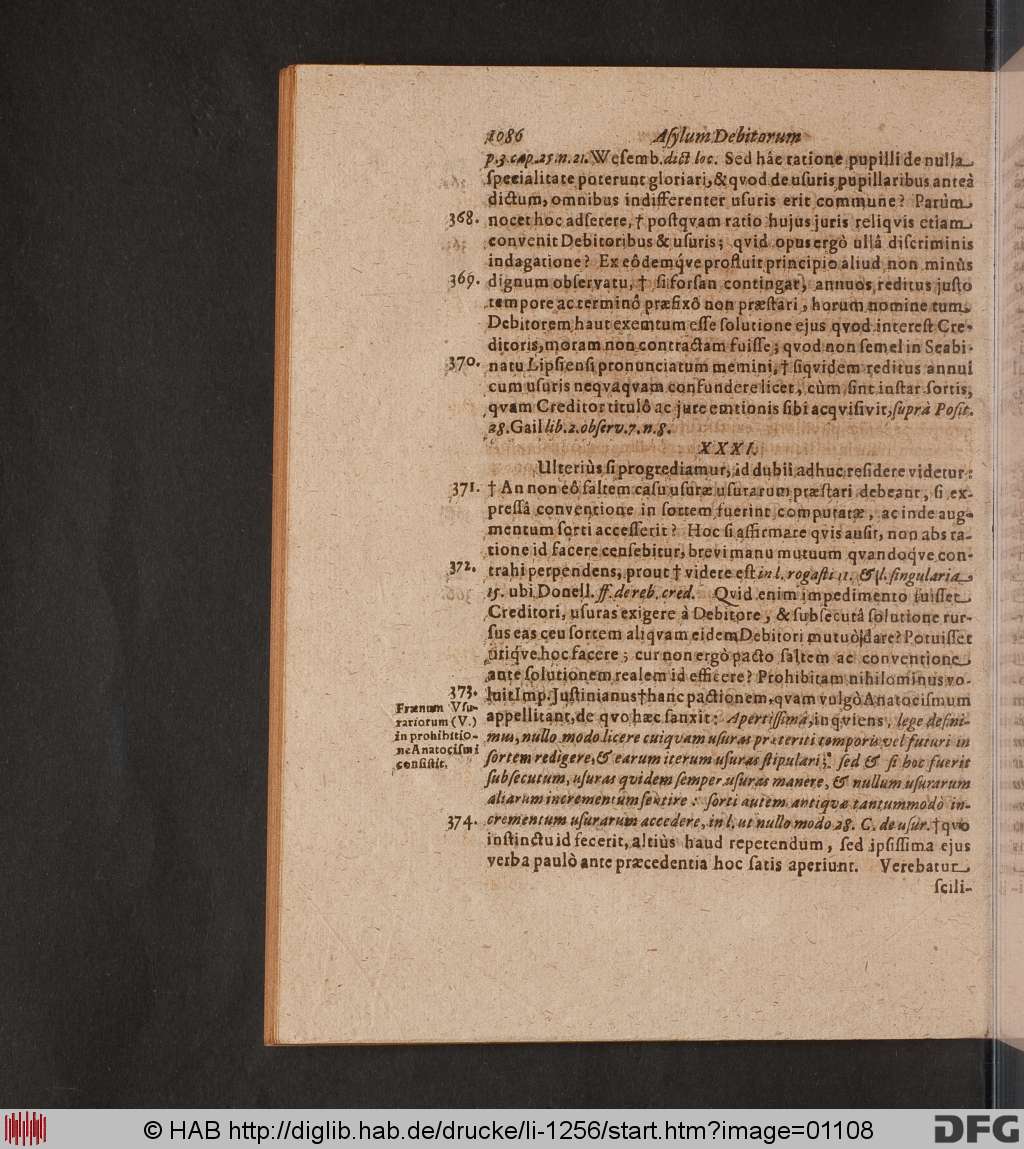 1086 Aſylum Debitorum
p.3. cap.25. n.21. Weſemb. dict loc. Sed hâc ratione pupilli de nulla
ſpecialitate poterunt gloriari, & qvod de uſuris pupillaribus anteà
dictum, omnibus indifferenter uſuris erit commune? Parùm
368. nocet hoc adſerere, † poſtqvam ratio hujus juris reliqvis etiam
convenit Debitoribus & uſuris; qvid opus ergò ullâ diſcriminis
indagatione? Ex eôdemq́ve profluit principio aliud non minùs
369. dignum obſervatu, † ſi forſan contingat, annuos reditus juſto
tempore ac terminô præfixô non præſtari, horum nomine tum
Debitorem haut exemtum eſſe ſolutione ejus qvod intereſt Cre-
ditoris, moram non contractam fuiſſe; qvod non ſemel in Scabi-
370. natu Lipſienſi pronunciatum memini, † ſiqvidem reditus annui
cum uſuris neqvaqvam confundere licet, cùm ſint inſtar ſortis,
qvam Creditor titulô ac jure emtionis ſibi acqviſivit, ſuprà Poſit.
28. Gail lib. 2. obſerv. 7. n. 8.
XXXI.
Ulteriùs ſi progrediamur, id dubii adhuc reſidere videtur:
371. † An non eô ſaltem caſu uſuræ uſurarum præſtari debeant, ſi ex-
preſſâ conventione in ſortem fuerint computatæ, ac inde aug-
mentum ſorti acceſſerit? Hoc ſi affirmare qvis auſit, non abs ra-
tione id facere cenſebitur, brevi manu mutuum qvandoqve con-
372. trahi perpendens, prout † videre eſt in l. rogaſti 11. & l. ſingularia
15. ubi Donell. ff. de reb. cred. Qvid enim impedimento fuiſſet
Creditori, uſuras exigere à Debitore, & ſubſecutâ ſolutione rur-
ſus eas ceu ſortem aliqvam eidem Debitori mutuò dare? Potuiſſet
utiq́ve hoc facere; cur non ergò pacto ſaltem ac conventione
ante ſolutionem realem id efficere? Prohibitam nihilominus vo-
373. luit Imp. Juſtinianus † hanc pactionem, qvam vulgò Anatociſmum
Frænum Uſu-
rariorum (V.)
in prohibitio-
ne Anatociſmi
conſiſtit.
appellitant, de qvo hæc ſanxit: Apertiſſimâ, inqviens, lege defini-
mus, nullo modo licere cuiquam uſuras præteriti temporis vel futuri in
ſortem redigere, & earum iterum uſuras ſtipulari; ſed & ſi hoc fuerit
ſubſecutum, uſuras quidem ſemper uſuras manere, & nullum uſurarum
aliarum incrementum ſentire: ſorti autem antiquæ tantummodò in-
374. crementum uſurarum accedere, in l. ut nullo modo 28. C. de uſur. † qvo
inſtinctu id fecerit, altiùs haud repetendum, ſed ipſiſſima ejus
verba paulò ante præcedentia hoc ſatis aperiunt. Verebatur
ſcili-
© HAB http://diglib.hab.de/drucke/li-1256/start.htm?image=01108
DFG